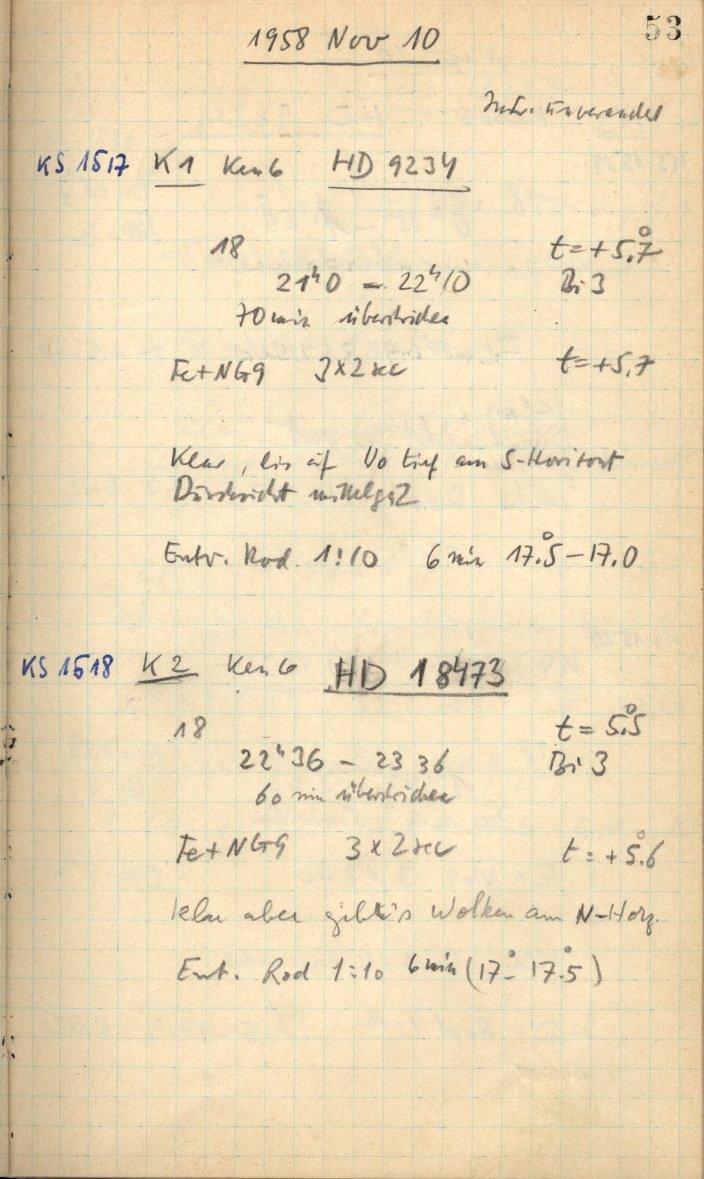 53
1958 Nov 10
Instr. unverändert
KS 1517 K1 Ken 6 HD 9234
18 t = +5°.7
21ʰ0 – 22ʰ10 Bi 3
70 min überstrichen
Fe+NG9 3x2 sec t = +5,7
Klar, bis auf tief am S-Horizont
Durchsicht
Entw. Rod. 1:10 6 min 17°.5 – 17.0
KS 1518 K2 Ken 6 HD 18473
18 t = 5°.5
22ʰ36 – 23 36 Bi 3
60 min überstrichen
Fe+NG9 3 x 2 sec t = +5°.6
klar aber gibt's Wolken am N-Horz.
Ent. Rod 1:10 6 min (17° – 17°.5)